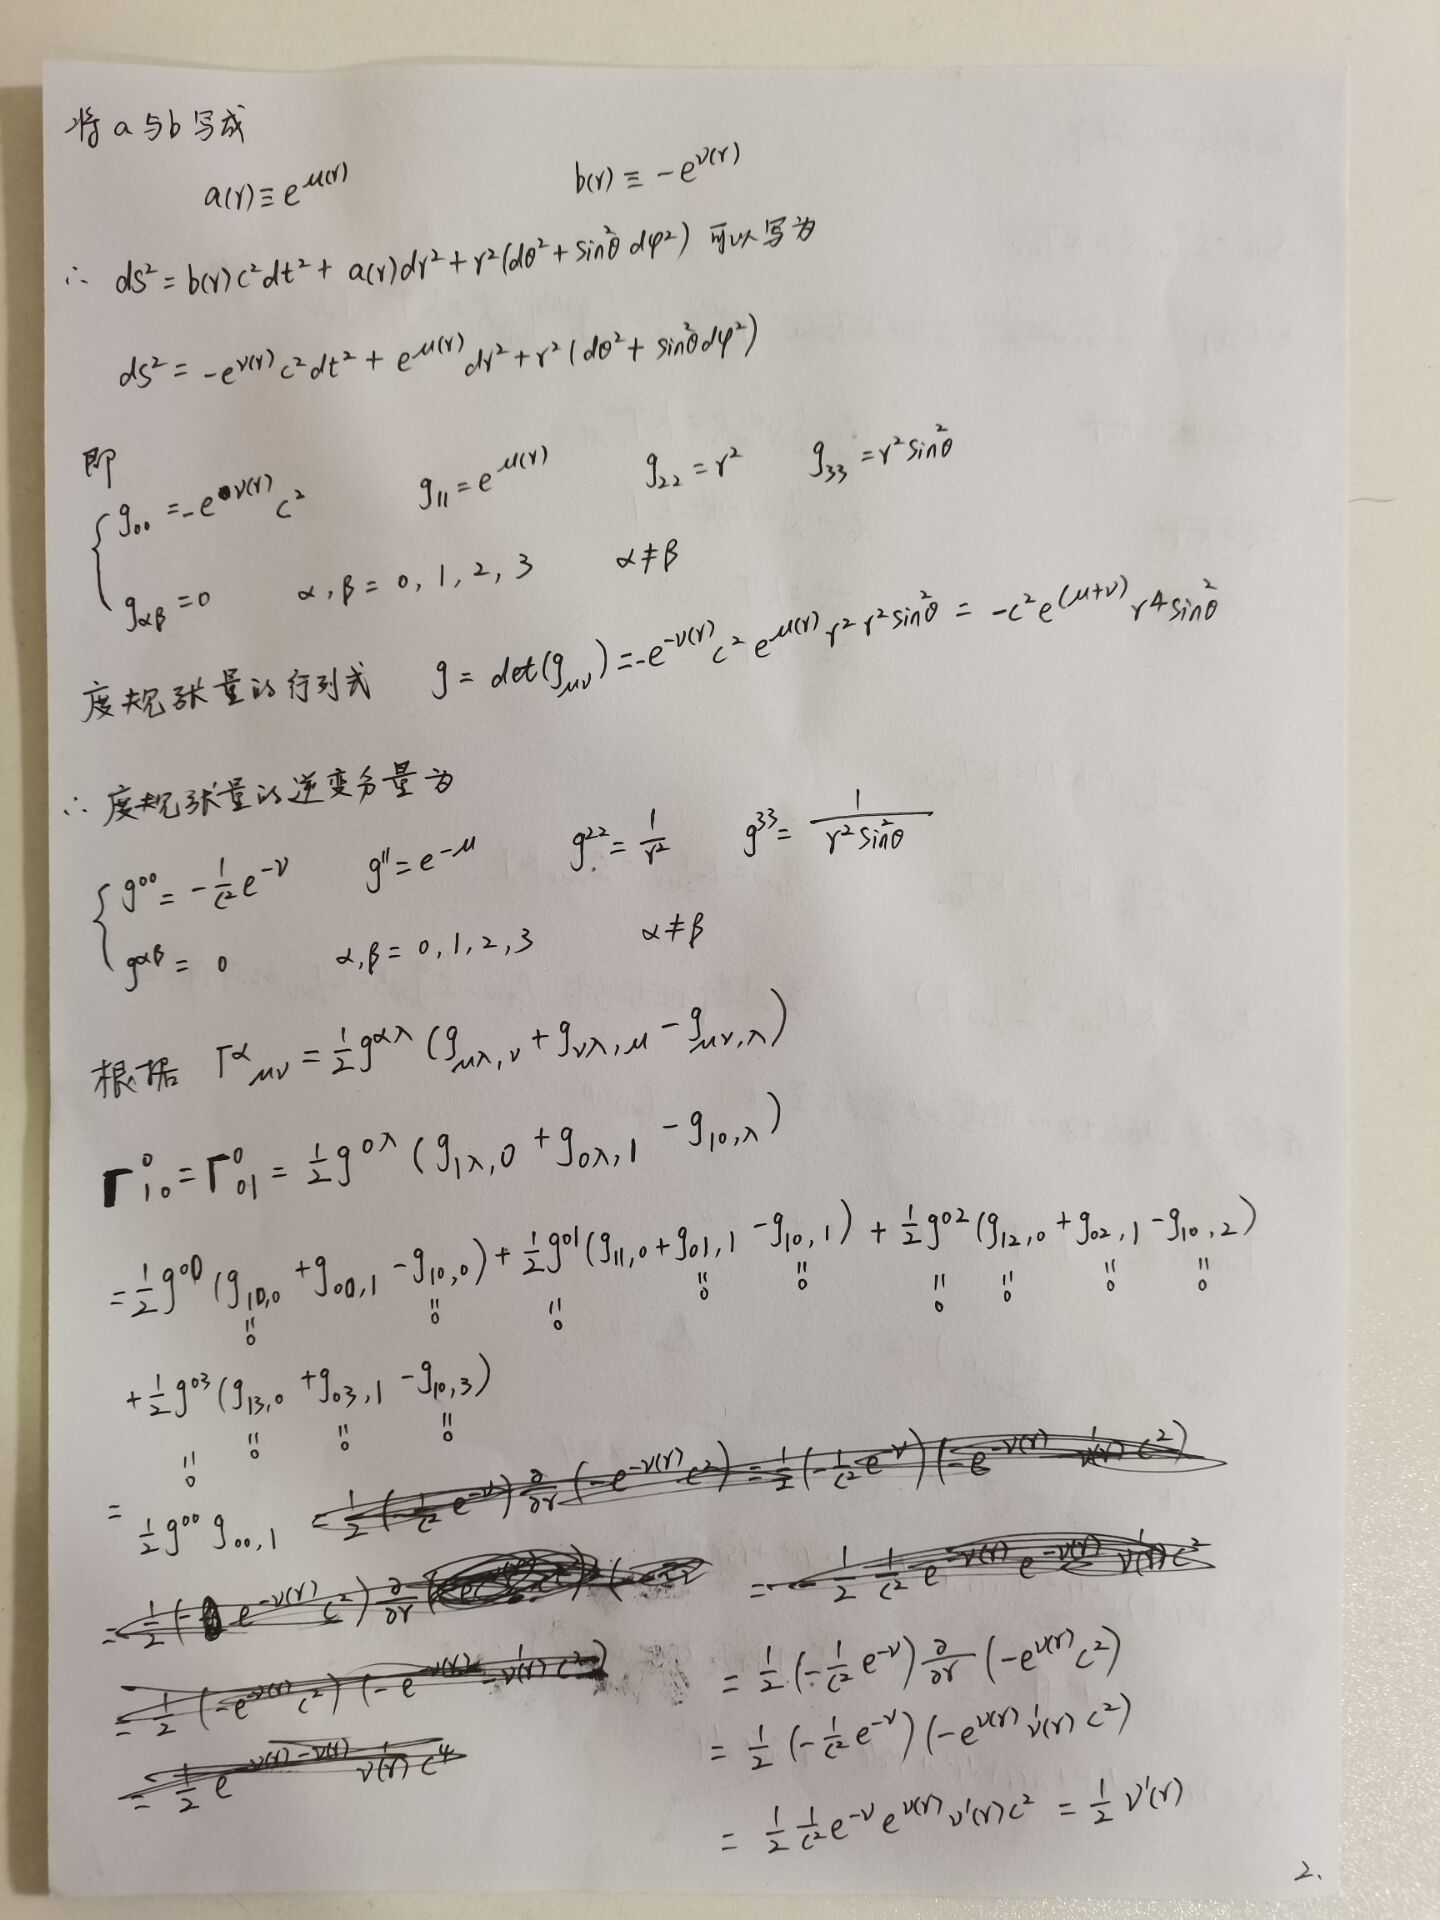 将a与b写成
a(r)≡e^{μ(r)} b(r)≡-e^{ν(r)}
∴ ds²=b(r)c²dt²+a(r)dr²+r²(dθ²+sin²θdφ²) 可以写为
ds²=-e^{ν(r)}c²dt²+e^{μ(r)}dr²+r²(dθ²+sin²θdφ²)
即
{ g₀₀=-e^{ν(r)}c² g₁₁=e^{μ(r)} g₂₂=r² g₃₃=r²sin²θ
g_{αβ}=0 α,β=0,1,2,3 α≠β
度规张量的行列式 g=det(g_{μν})=-e^{-ν(r)}c²e^{μ(r)}r²r²sin²θ=-c²e^{(μ+ν)}r⁴sin²θ
∴度规张量的逆变分量为
{ g^{00}=-\frac{1}{c²}e^{-ν} g^{11}=e^{-μ} g^{22}=\frac{1}{r²} g^{33}=\frac{1}{r²sin²θ}
g^{αβ}=0 α,β=0,1,2,3 α≠β
根据 Γ^α_{μν}=\frac{1}{2}g^{αλ}(g_{μλ,ν}+g_{νλ,μ}-g_{μν,λ})
Γ^0_{10}=Γ^0_{01}=\frac{1}{2}g^{0λ}(g_{1λ,0}+g_{0λ,1}-g_{10,λ})
=\frac{1}{2}g^{00}(g_{10,0}+g_{00,1}-g_{10,0})+\frac{1}{2}g^{01}(g_{11,0}+g_{01,1}-g_{10,1})+\frac{1}{2}g^{02}(g_{12,0}+g_{02,1}-g_{10,2})
=0 =0 =0 =0 =0 =0 =0 =0 =0
+\frac{1}{2}g^{03}(g_{13,0}+g_{03,1}-g_{10,3})
=0 =0 =0 =0
=\frac{1}{2}g^{00}g_{00,1}
=\frac{1}{2}(-\frac{1}{c²}e^{-ν})\frac{∂}{∂r}(-e^{ν(r)}c²)
=\frac{1}{2}(-\frac{1}{c²}e^{-ν})(-e^{ν(r)}ν'(r)c²)
=\frac{1}{2}\frac{1}{c²}e^{-ν}e^{ν(r)}ν'(r)c²=\frac{1}{2}ν'(r)
2.